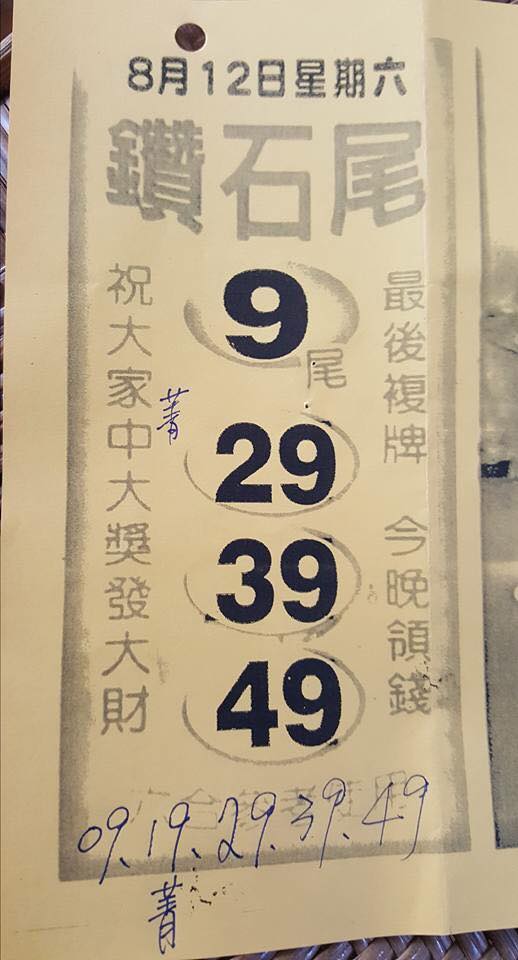 8月12日星期六
鑽石尾
最後複牌 今晚領錢
9尾
29
39
49
祝大家中大獎發大財
菁
09.19.29.39.49
菁